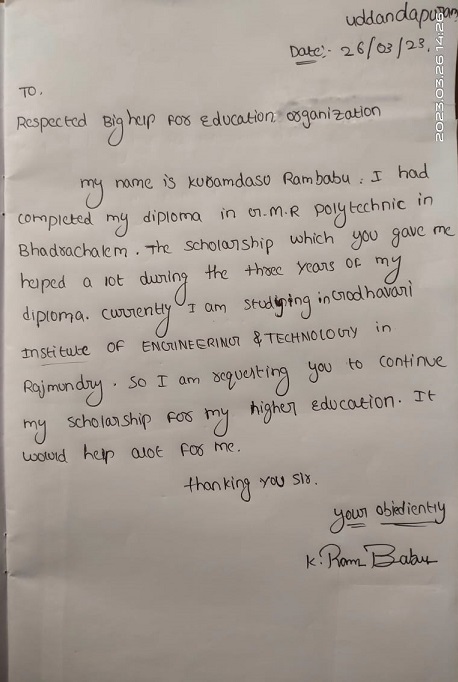 uddandapuram
Date:- 26/03/23.
2023.03.26 14:26
TO.
Respected Big help for education organization
my name is kuramdasu Rambabu. I had
completed my diploma in G.M.R polytechnic in
Bhadrachalem. The scholarship which you gave me
helped a lot during the three years of my
diploma. currently I am studying in Godhavari
Institute OF ENGINEERING & TECHNOLOGY in
Rajmundry. So I am requesting you to continue
my scholarship for my higher education. It
would help alot for me.
thanking you sir.
your obediently
K. Ram Babu